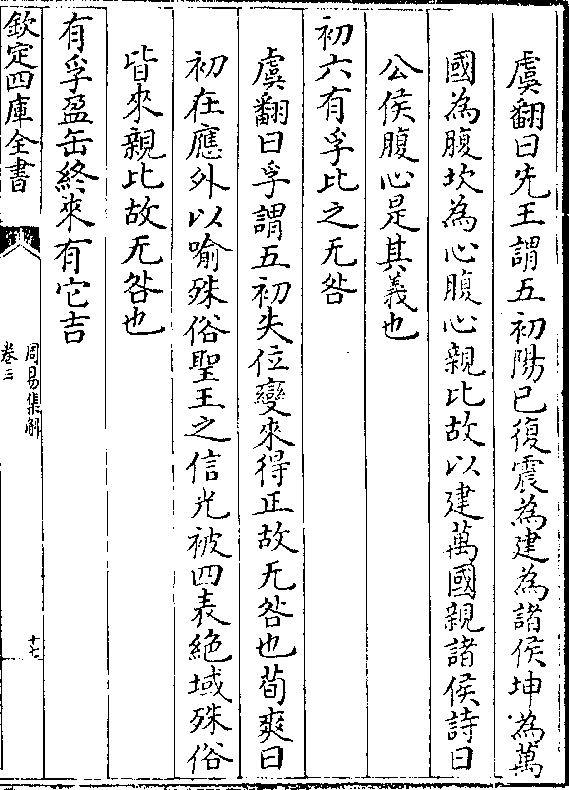 虞翻曰先王謂五初陽已復震為建為諸侯坤為萬
國為腹坎為心腹心親比故以建萬國親諸侯詩曰
公侯腹心是其義也
初六有孚比之无咎
虞翻曰孚謂五初失位變來得正故无咎也荀爽曰
初在應外以喻殊俗聖王之信光被四表絶域殊俗
皆來親比故无咎也
有孚盈缶終來有它吉
欽定四庫全書
周易集解
卷三
十七